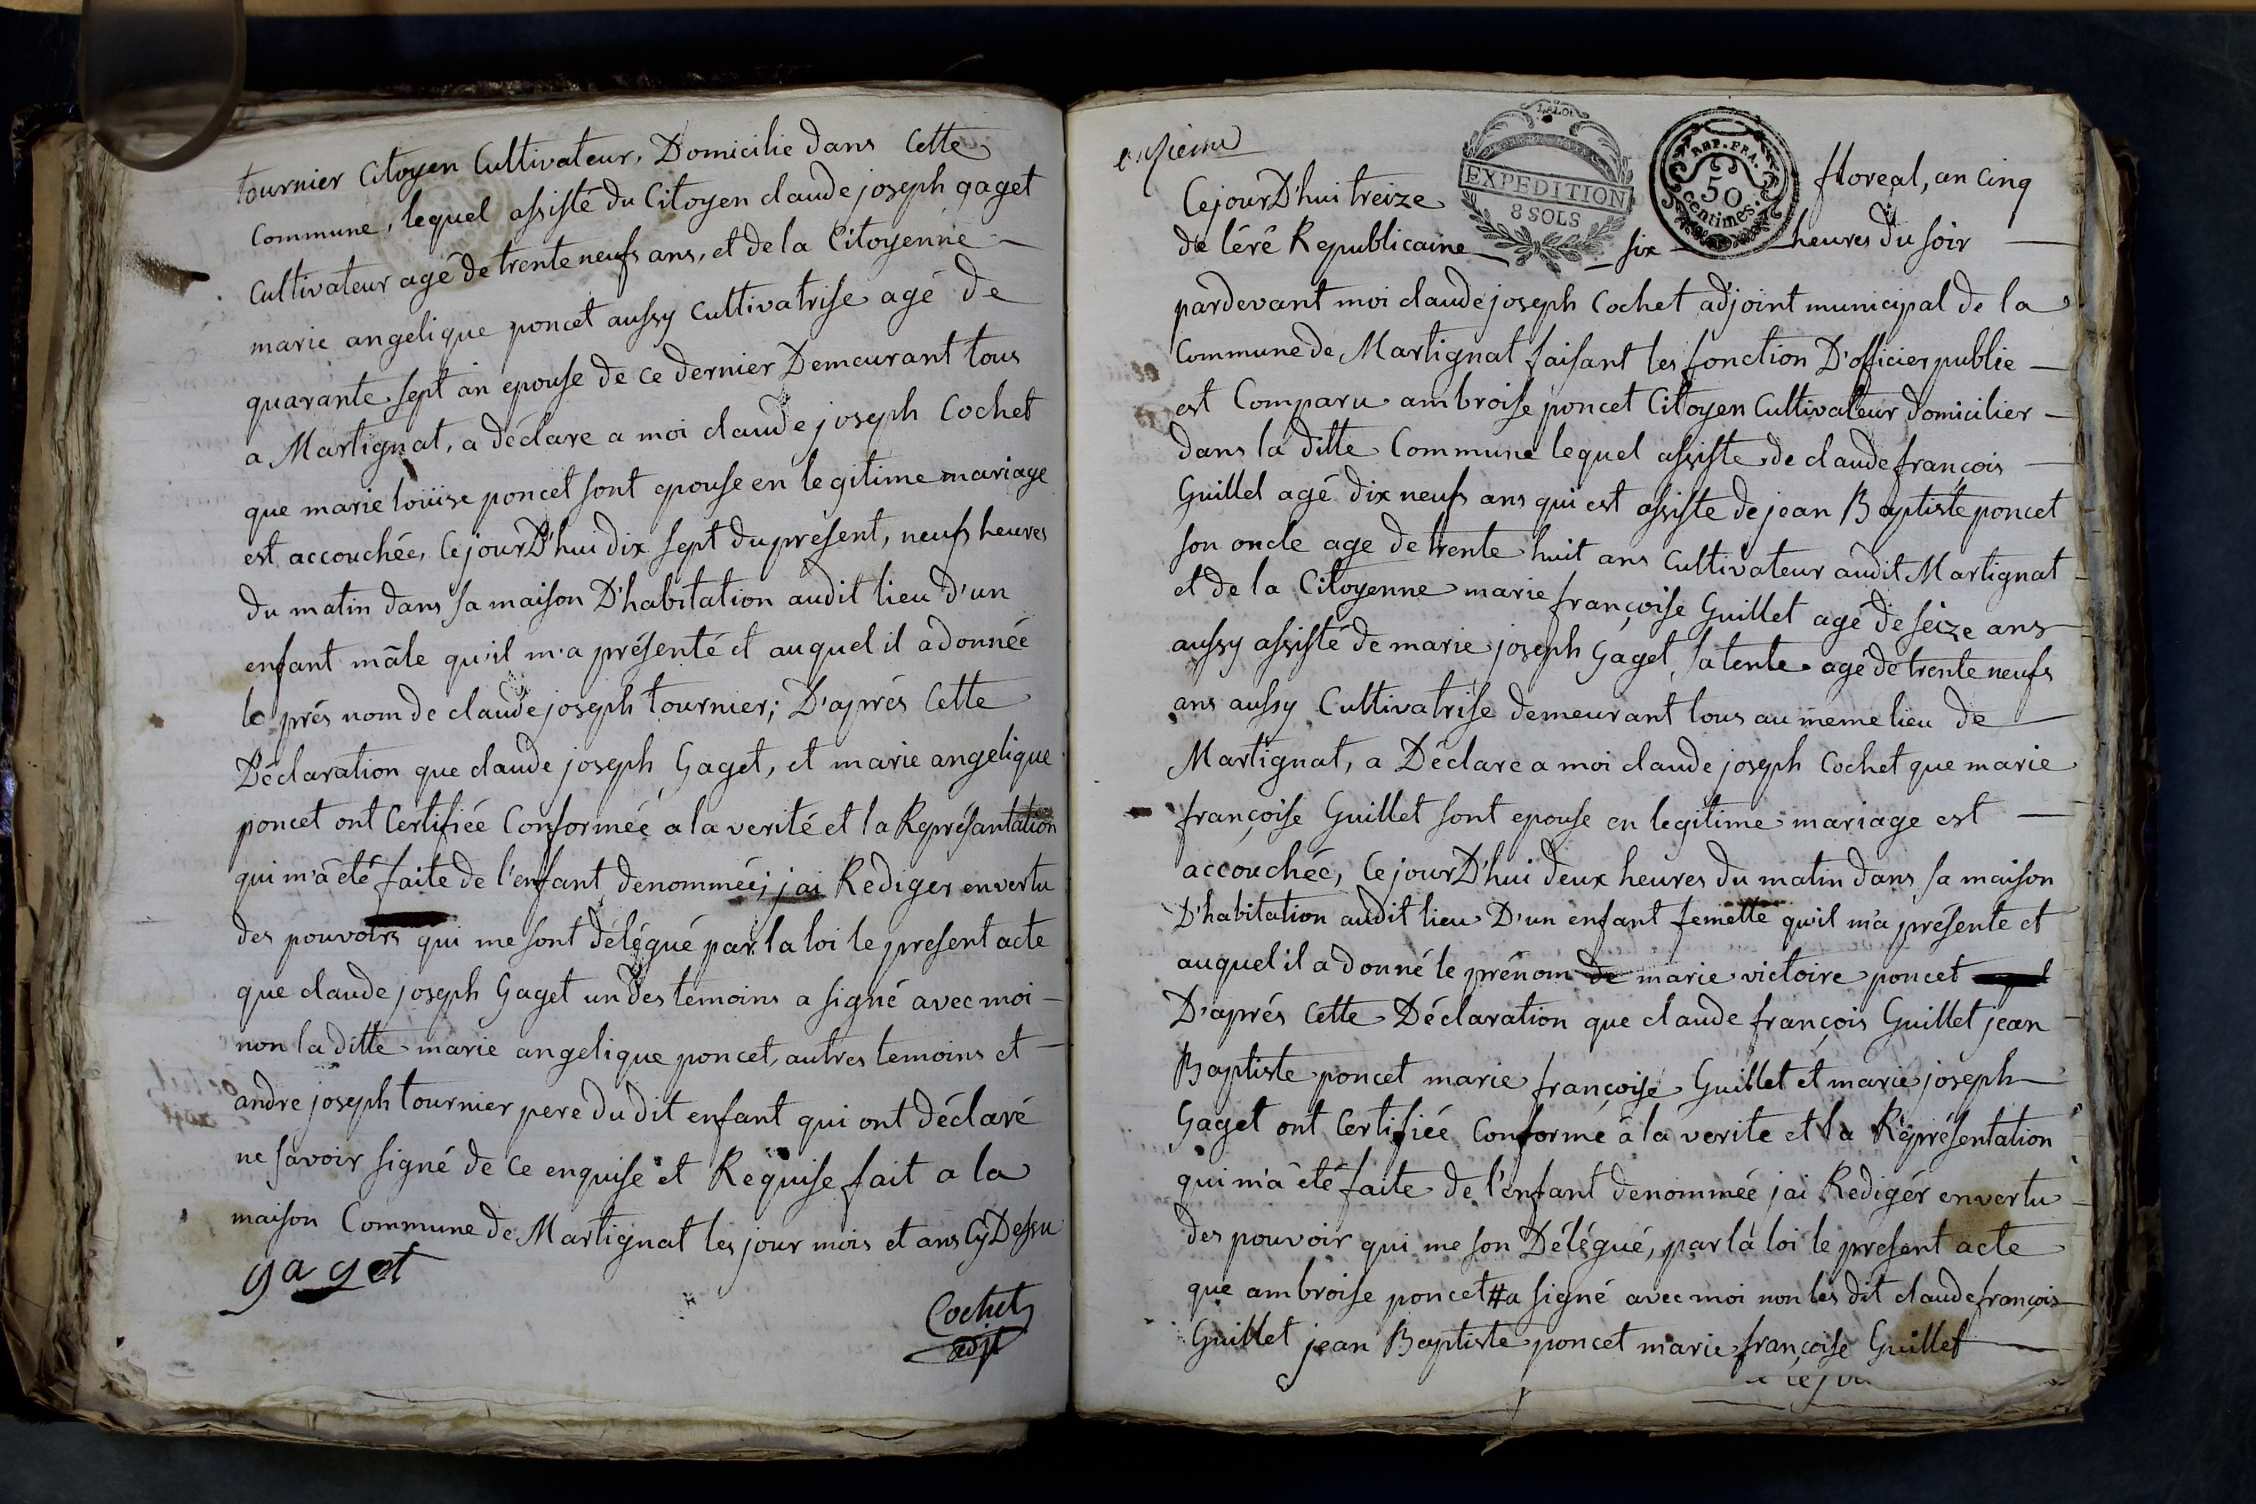 tournier Citoyen Cultivateur, Domicilie dans Cette
commune, lequel assisté du Citoyen claude joseph gaget
Cultivateur agé de trente neufs ans, et de la Citoyenne
marie angelique poncet aussy Cultivatrise agé de
quarante sept an epouse de ce dernier Demeurant tous
a Martignat, a déclare a moi claude joseph Cochet
que marie loüise poncet sont epouse en legitime mariage
est accouchée, Ce jour D'hui dix sept du présent, neufs heures
du matin dans sa maison D'habitation audit lieu d'un
enfant mâle qu'il m'a présenté et auquel il a donnée
le prés nom de claude joseph tournier; D'aprés Cette
Déclaration que claude joseph Gaget, et marie angelique
poncet ont Certifiée Conformée a la verité et la Représantation
qui m'a été faite de l'enfant denommée; jai Rediger en vertu
des pouvoirs qui me sont délégué par la loi le present acte
que claude joseph Gaget un des temoins a signé avec moi
non la ditte marie angelique poncet, autres temoins et
andre joseph tournier pere du dit enfant qui ont déclaré
ne savoir signé de ce enquise et Requise fait a la
maison Commune de Martignat les jour mois et ans Cy Dessu
gaget
Cochet
adjt
LA LOI
EXPEDITION
8 SOLS
REP. FRA.
50
centimes.
Ce jour D'hui treize floreal, an Cinq
de l'éré Republicaine six heures du soir
pardevant moi claude joseph Cochet adjoint municipal de la
Commune de Martignat faisant les fonction D'officier publie
est Comparu ambroise poncet Citoyen Cultivateur domicilier
dans la ditte Commune lequel assiste de claude françois
Guillet agé dix neufs ans qui est assiste de jean Baptiste poncet
son oncle age de trente huit ans Cultivateur audit Martignat
et de la Citoyenne marie françoise Guillet agé de seize ans
aussy assisté de marie joseph Gaget, sa tente agé de trente neufs
ans aussy Cultivatrise demeurant tous au meme lieu de
Martignat, a Déclare a moi claude joseph Cochet que marie
françoise Guillet sont epouse en legitime mariage est
accouchée, Ce jour D'hui deux heures du matin dans sa maison
D'habitation audit lieu D'un enfant femelle qu'il m'a présente et
auquel il a donné le prénom de marie victoire poncet
D'aprés Cette Déclaration que claude françois Guillet jean
Baptiste poncet marie françoise Guillet et marie joseph
Gaget ont Certifiée Conforme à la verite et la Représentation
qui m'à été faite de l'enfant denommée jai Redigér en vertu
des pouvoir qui me son Délégué, par la loi le present acte
que ambroise poncet # a signé avec moi non les dit claude françois
Guillet jean Baptiste poncet marie françoise Guillet